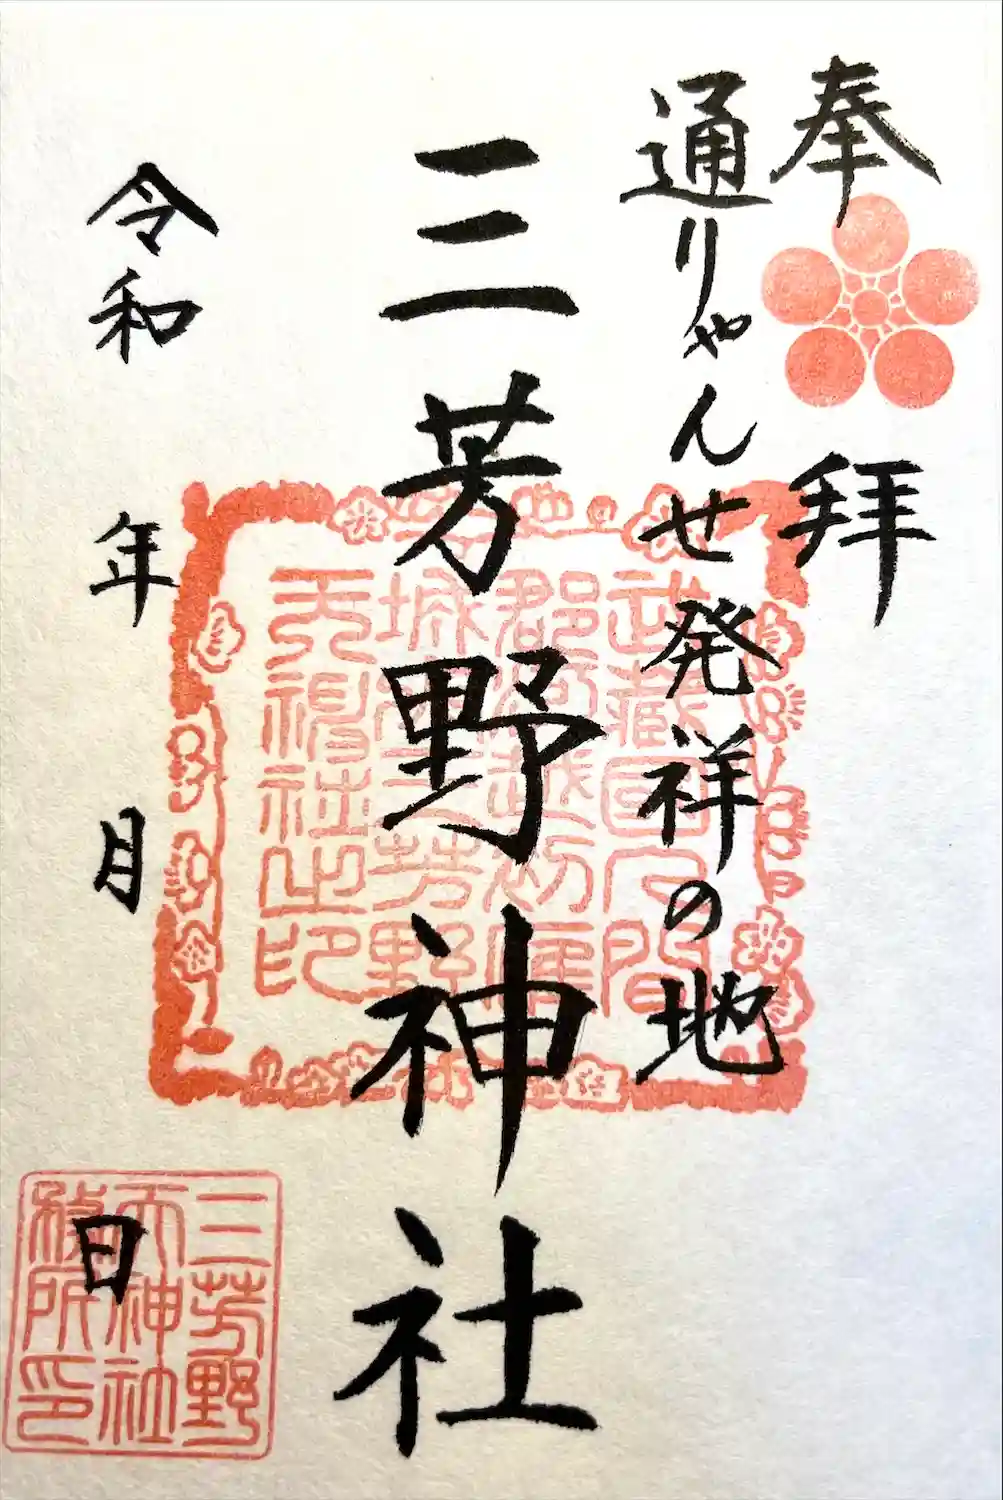 奉拝
通りゃんせ発祥の地
三芳野神社
令和 年 月 日
武蔵国入間
郡河越初雁
城内三芳野
天満社之印
三芳野
天神社
務所印